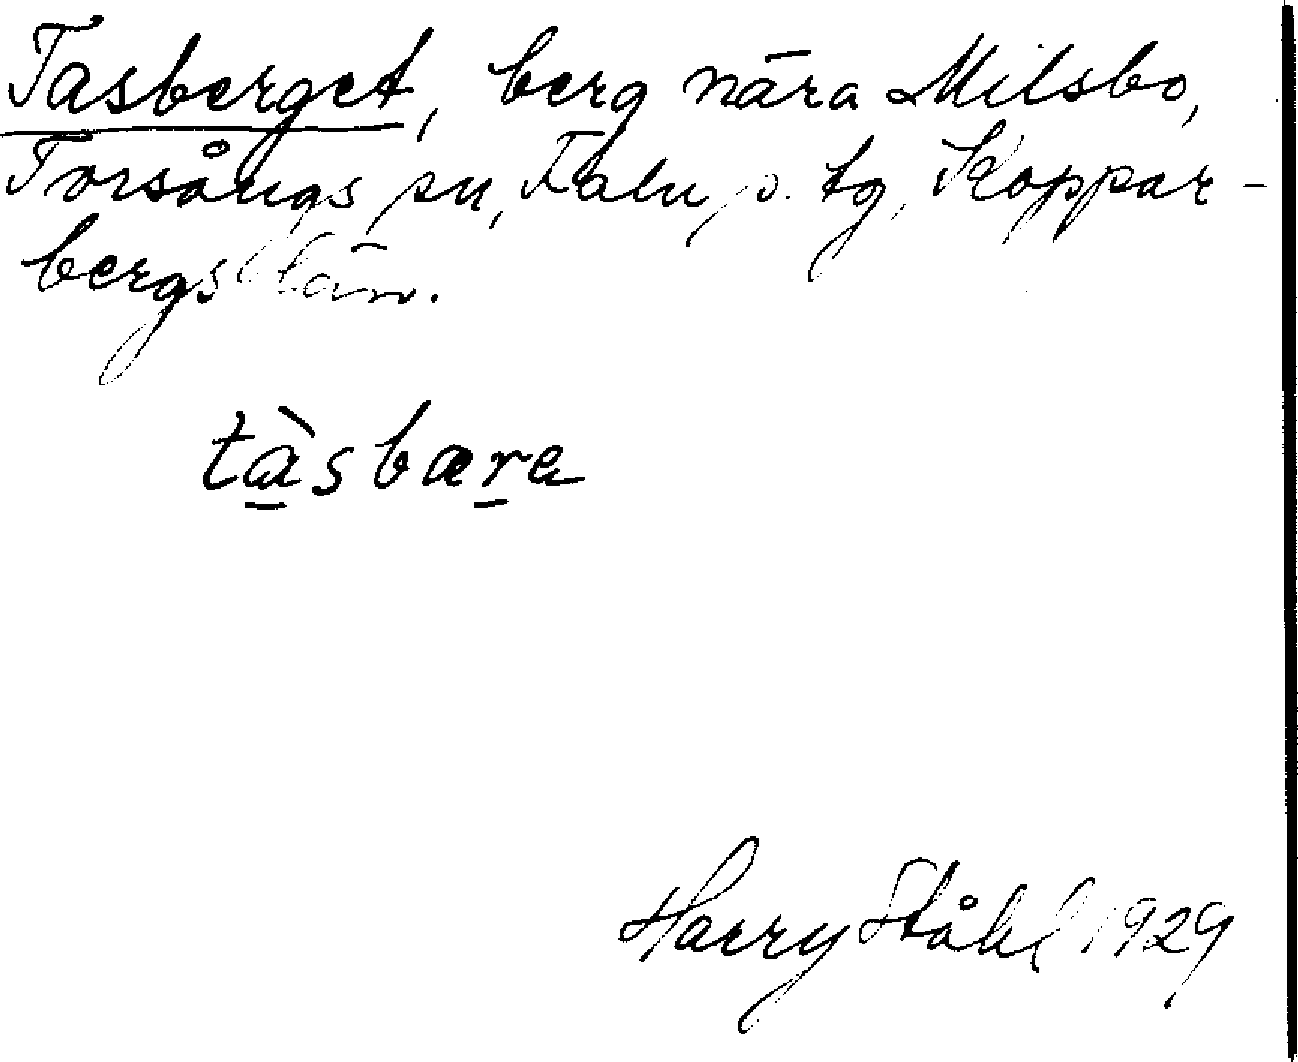 Tasberget, berg nära Milsbo,
Torsångs sn, Falu s. tg, Koppar-
bergs län.
tàsbære
Harry Ståhl 1929